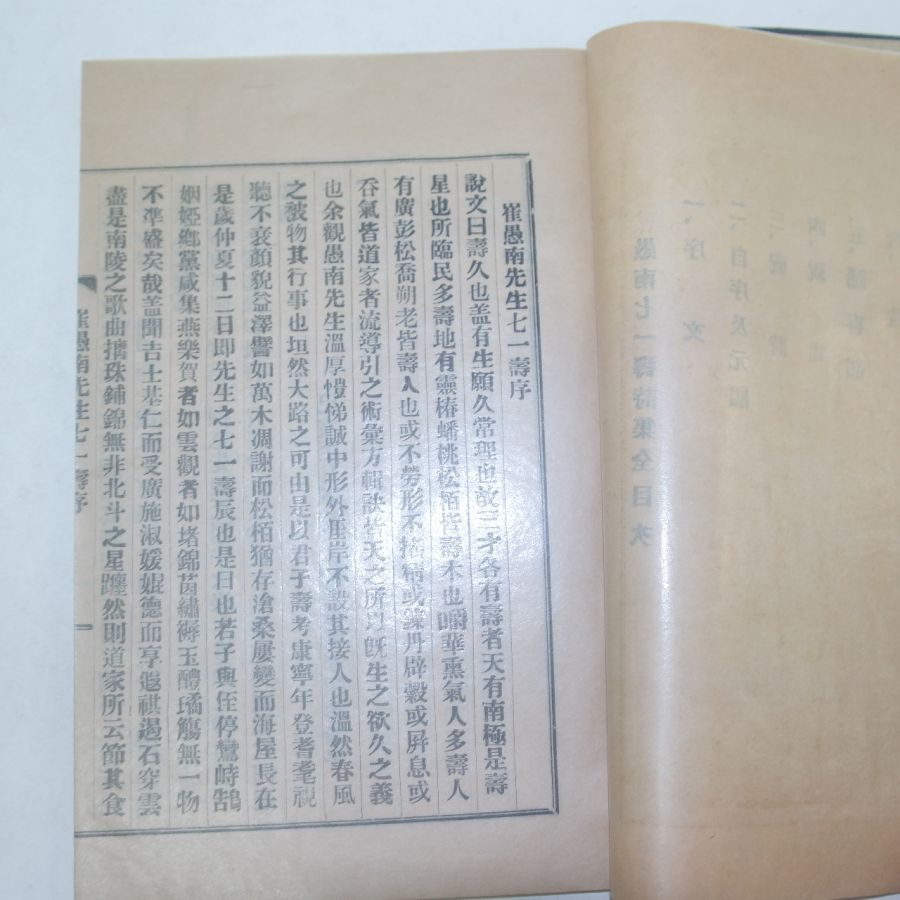 崔愚南先生七一壽序
說文曰壽久也盖有生願久常理也故三才各有壽者天有南極是壽
星也所臨民多壽地有靈椿蟠桃松栢皆壽木也 華熏氣人多壽人
有廣彭松喬朔老皆壽人也或不勞形不搖精或 丹辟穀或屛息或
吞氣皆道家者流導引之術彙方輯訣皆天之所 旣生之欲久之義
也余觀愚南先生溫厚愷悌誠中形外厓岸不設其接人也溫然春風
之 物其行事也坦然大路之可由是以君子壽考康寧年登耆耄視
聽不衰顔貌益澤譬如萬木凋謝而松栢猶存滄桑屢變而海屋長在
是歲仲夏十二日卽先生之七一壽辰也是日也若子與侄停鸞峙鵠
姻婭鄉黨咸集燕樂賀者如雲觀者如堵錦茵繡褥玉醴瑤觴無一物
不準盛矣哉盖聞吉士基仁而受廣施淑媛娓德而享遐祺遏石穿雲
盡是南陵之歌曲擒珠鋪錦無非北斗之星躔然則道家所云節其食
崔愚南先生七一壽序
愚南七一壽詩集全目次
一、序文
二、自序及元韻